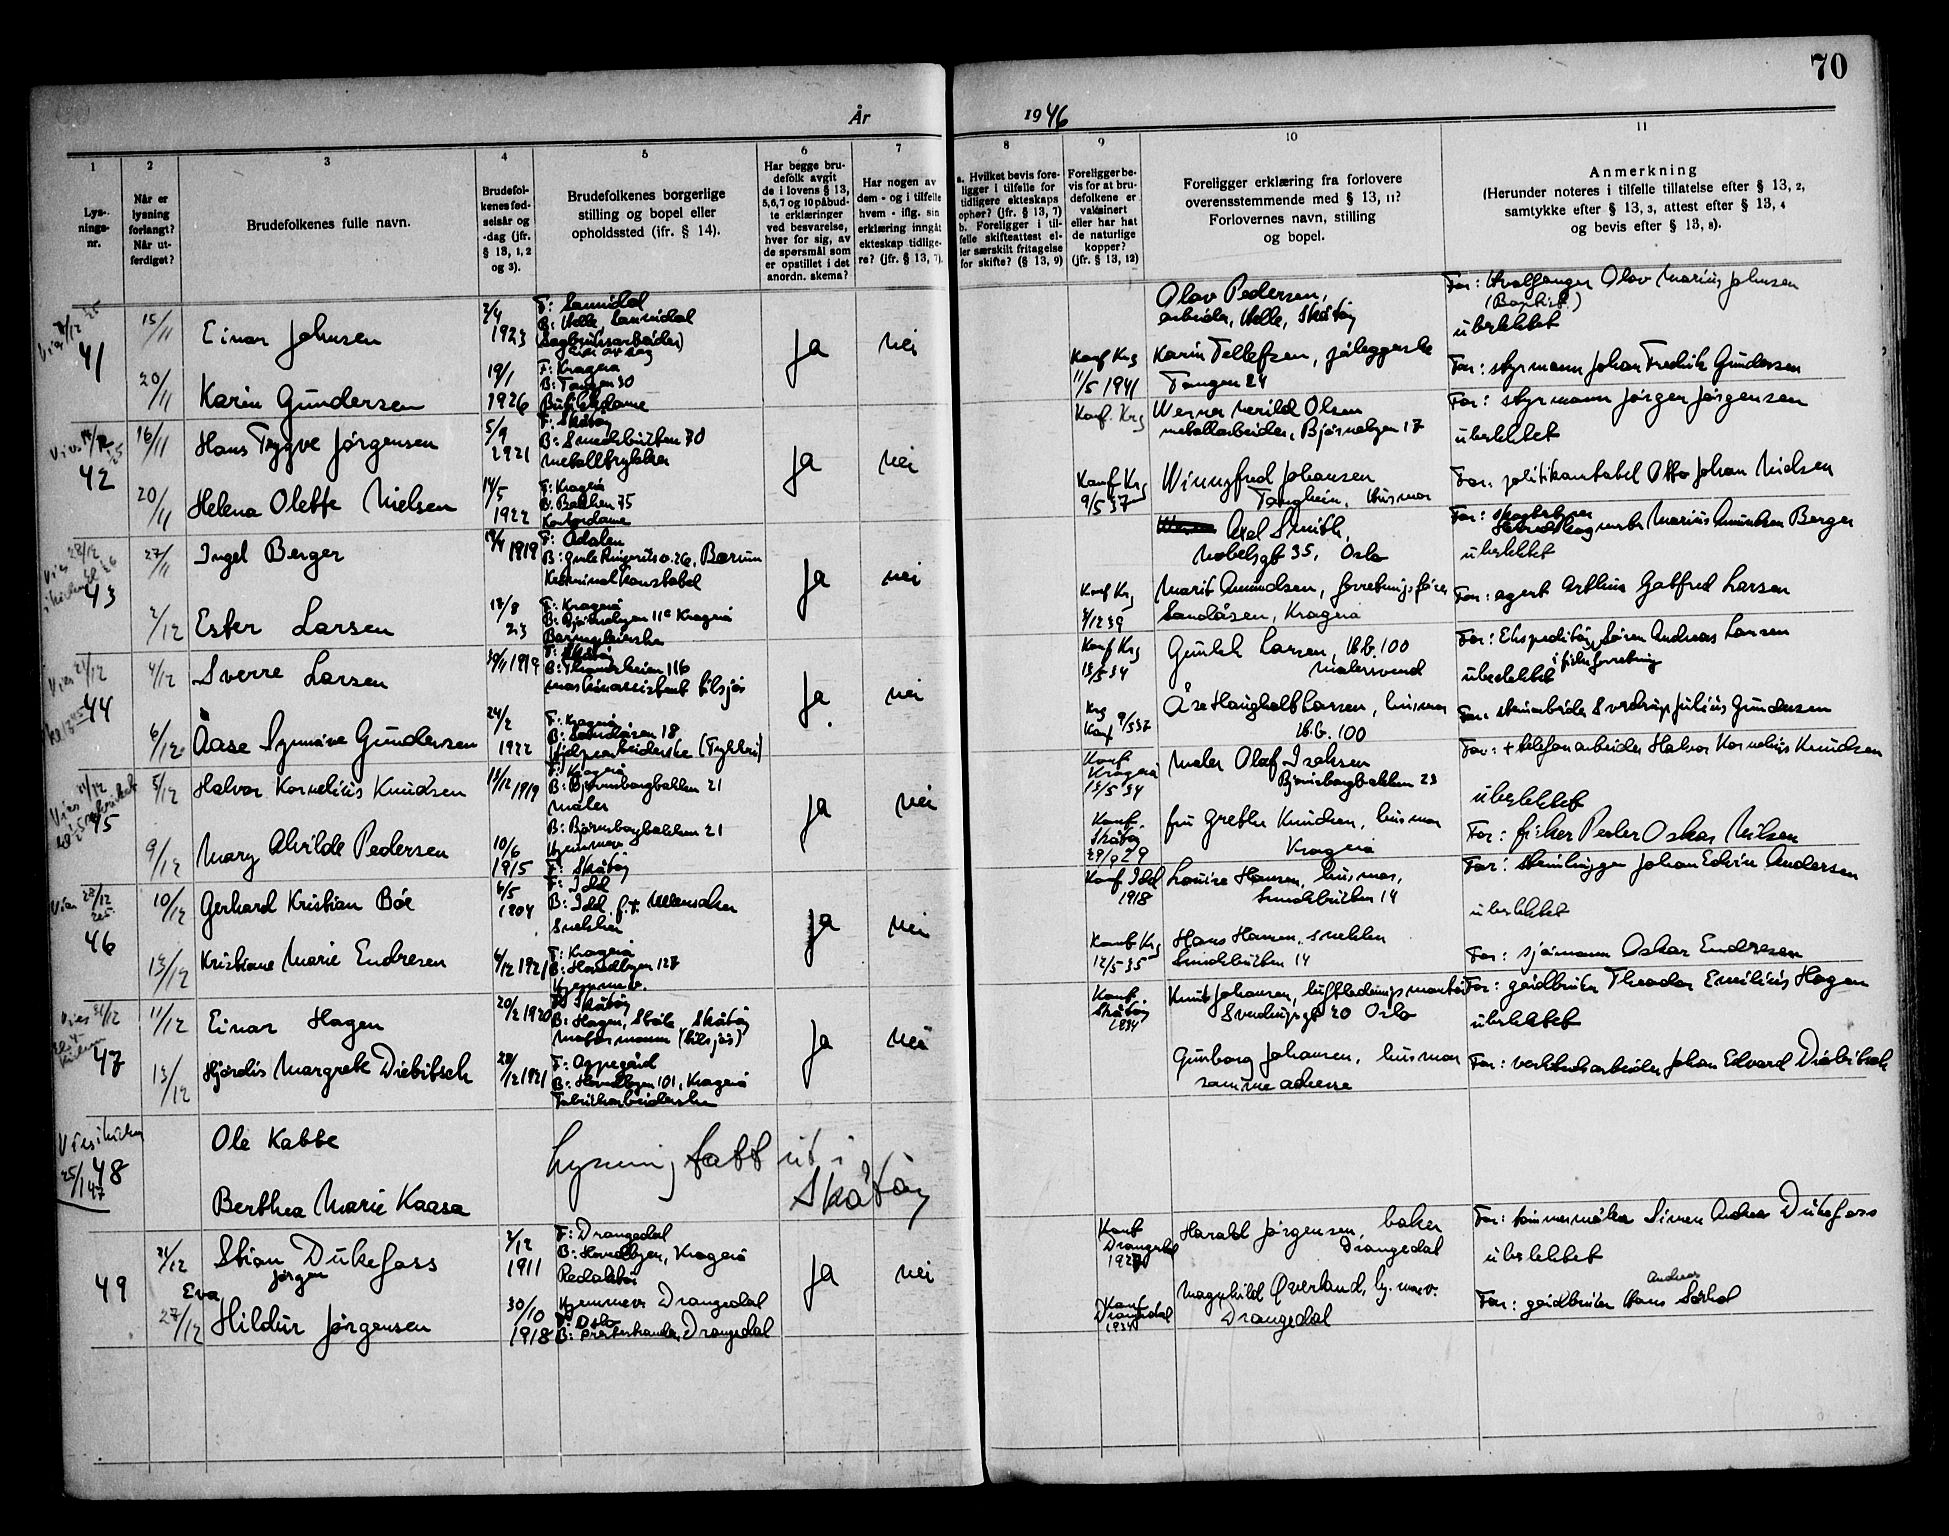 70
År
1946
1
2
3
4
5
6
7
8
9
10
11
Lys-
nings-
nr.
Når er
lysning
forlangt?
Når ut-
ferdiget?
Brudefolkenes fulle navn.
Brudefol-
kenes fød-
selsår og
-dag (jfr.
§ 13, 1, 2
og 3).
Brudefolkenes borgerlige
stilling og bopel eller
opholdssted (ifr. § 14).
Har begge bru-
defolk avgit
de i lovens § 13,
5,6,7 og 10 påbud-
te erklæringer
ved besvarelse,
hver for sig, av
de spørsmål som
er opstillet i det
anordn. skema?
Har nogen av
dem - og i tilfelle
hvem - iflg. sin
erklæring inngått
ekteskap tidlige-
re? (jfr. § 13, 7).
a. Hvilket bevis fore-
ligger i tilfelle for
tidligere ekteskaps
ophør? (jfr. § 13, 7)
b. Foreligger i til-
felle skifteattest el-
ler særskilt fritagelse
for skifte? (§ 13, 9)
Foreligger be-
vis for at bru-
defolkene er
vaksinert
eller har hat
de naturlige
kopper?
(jfr. § 13, 12)
Foreligger erklæring fra forlovere
overensstemmende med § 13, 11?
Forlovernes navn, stilling
og bopel.
Anmerkning
(Herunder noteres i tilfelle tillatelse efter § 13, 2,
samtykke efter § 13, 3, attest efter § 13, 4
og bevis efter § 13, 8).
41
15/11
Einar Johnsen
2/4
1923
F: Sannidal
B: Helle, Sannidal
Sagbruksarbeider
Ja
nei
Olav Pedersen,
arbeider, Helle, Skåtøy
For: Hvalfanger Olav Marius Johnsen
(Baptist.)
ubeslektet
20/11
Karin Gundersen
19/1
1926
F: Kragerø
B: Tangen 30
Butikkdame
Konf Krg
11/5 1941
Karin Tellefsen,
Tangen 24
Far: styrmann Johan Fredrik Gundersen
42
16/11
Hans Trygve Jørgensen
5/9
1921
F: Skåtøy
B: Smedsbukten 70
metalltrykker
Ja
nei
Konf. Krg
Werner Merild Olsen
metallarbeider, Bjørnebyen 17
Far: styrmann Jørgen Jørgensen
ubeslektet
20/11
Helena Olette Nielsen
14/5
1922
F: Kragerø
B: Bakken 75
Kontordame
Konf Krg
9/5 37
Winnyfred Johansen
Tangheim, Husmor
Far: politikonstabel Otto Johan Nielsen
43
27/11
Ingel Berger
1919
F: Ådalen
Bærum
Kriminalkonstabel
Ja
nei
Axel Smith,
Nobelsgt 35, Oslo
Marius Amundsen Berger
ubeslektet
2/12
Ester Larsen
18/8
23
F: Kragerø
B: Bjørnebyen 11c Kragerø
Barnepleierske
Konf Krg
4/12 39
Marit Amundsen, forretningsfører
Sandåsen, Kragerø
Far: agent Arthur Gotfred Larsen
44
4/12
Sverre Larsen
30/11 1919
F: Skåtøy
maskinassistent tilsjøs
Ja
nei
Konf Krg
13/5 34
Larsen, Bb. 100
malersvend
Far: Ekspeditør Søren Andreas Larsen
i fiskeforretning
ubeslektet
6/12
Åase Synnøve Gundersen
24/2
1922
F: Kragerø
B: Sandåsen 18
Hjelpearbeiderske (Trykkeri)
Krg
Konf 9/5 37
Åse Haugholt Larsen, husmor
Bb. 100
Far: stenarbeider Sverdrup Julius Gundersen
45
5/12
Halvor Kornelius Knudsen
13/12 1919
F: Kragerø
B: Bjørnsborgbakken 21
maler
Ja
nei
Konf
Kragerø
13/5 34
Maler Olaf Isaksen
Bjørnsborgbakken 23
Far: + telefonarbeider Halvor Kornelius Knudsen
ubeslektet
9/12
Mary Alvilde Pedersen
10/6
1915
B: Bjørnsborgbakken 21
Hjemmev.
F: Skåtøy
Konf.
Skåtøy
29/9 29
fru Grethe Knudsen, husmor
Kragerø
Far: fisker Peder Oskar Nilsen
46
10/12
Gerhard Kristian Bøe
6/5
1904
F: Idd
B: Idd. f.t.
Snekker
Ja
nei
Konf Idd
1918
Louise Hansen, husmor,
Smedsbukten 14
Far: stenhugger Johan Edvin Andersen
ubeslektet
13/12
Kristiane Marie Endresen
4/12 1921
F: Kragerø
B: Hovedbyen 127
Hjemmev.
Konf Krg
12/5 35
Hans Hansen, snekker
Smedsbukten 14
Far: sjømann Oskar Endresen
47
11/12
Einar Hagen
20/2 1920
F: Skåtøy
B: Hagen, Støle, Skåtøy
Motormann (tilsjøs)
Ja
nei
Konf.
Skåtøy
1934
Knut Johansen, luftledningsmontør
Sverdrupsgt 20 Oslo
Far: gårdbruker Theodor Emilius Hagen
ubeslektet
13/12
Hjørdis Margrete Diebitsch
28/12 1921
F: Oppegård
B: Hovedbyen 101, Kragerø
Fabrikkarbeiderske
Gunborg Johansen, husmor
samme adresse
Far: verkstedsarbeider Johan Edvard Diebitsch
Vies i kirken
25/1 47
48
Ole Kabbe
Lysning tatt ut i
Skåtøy
Berthea Marie Kaasa
49
21/12
Stian Dukefoss
Jørgen
2/12
1911
F: Drangedal
B: Hovedbyen, Kragerø
Redaktør
Ja
nei
Konf
Drangedal
Harald Jørgensen, baker
Drangedal
Far: tømmermåler Simen Andreas Dukefoss
ubeslektet
27/12
Eva
Hildur Jørgensen
30/10
1918
Hjemmev. Drangedal
F: Oslo
B: Prestestranda, Drangedal
Konf
Drangedal
1934
Magnhild Øverland, hj. mev.
Drangedal
Andreas
Far: gårdbruker Hans